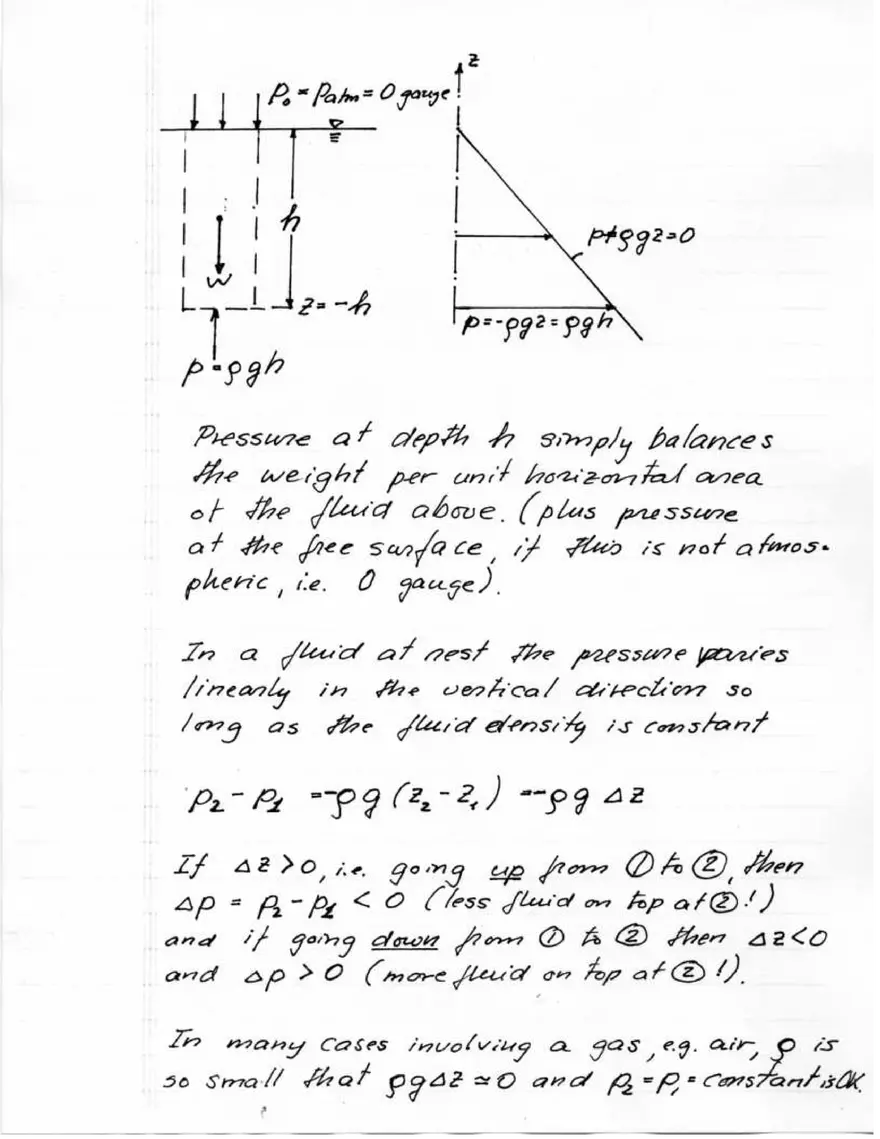 z
P₀ = Patm = 0 gauge
h
p+ρgz=0
W
z = -h
p=-ρgz=ρgh
p=ρgh
Pressure at depth h simply balances
the weight per unit horizontal area
of the fluid above. (plus pressure
at the free surface, if this is not atmos-
pheric, i.e. 0 gauge).
In a fluid at rest the pressure varies
linearly in the vertical direction so
long as the fluid density is constant
p₂ - p₁ = -ρg (z₂ - z₁) = -ρg Δz
If Δz > 0, i.e. going up from ① to ②, then
Δp = p₂ - p₁ < 0 (less fluid on top at ②!)
and if going down from ① to ② then Δz<0
and Δp > 0 (more fluid on top at ②!).
In many cases involving a gas, e.g. air, ρ is
so small that ρgΔz ≃ 0 and p₂ = p₁ = constant is OK.